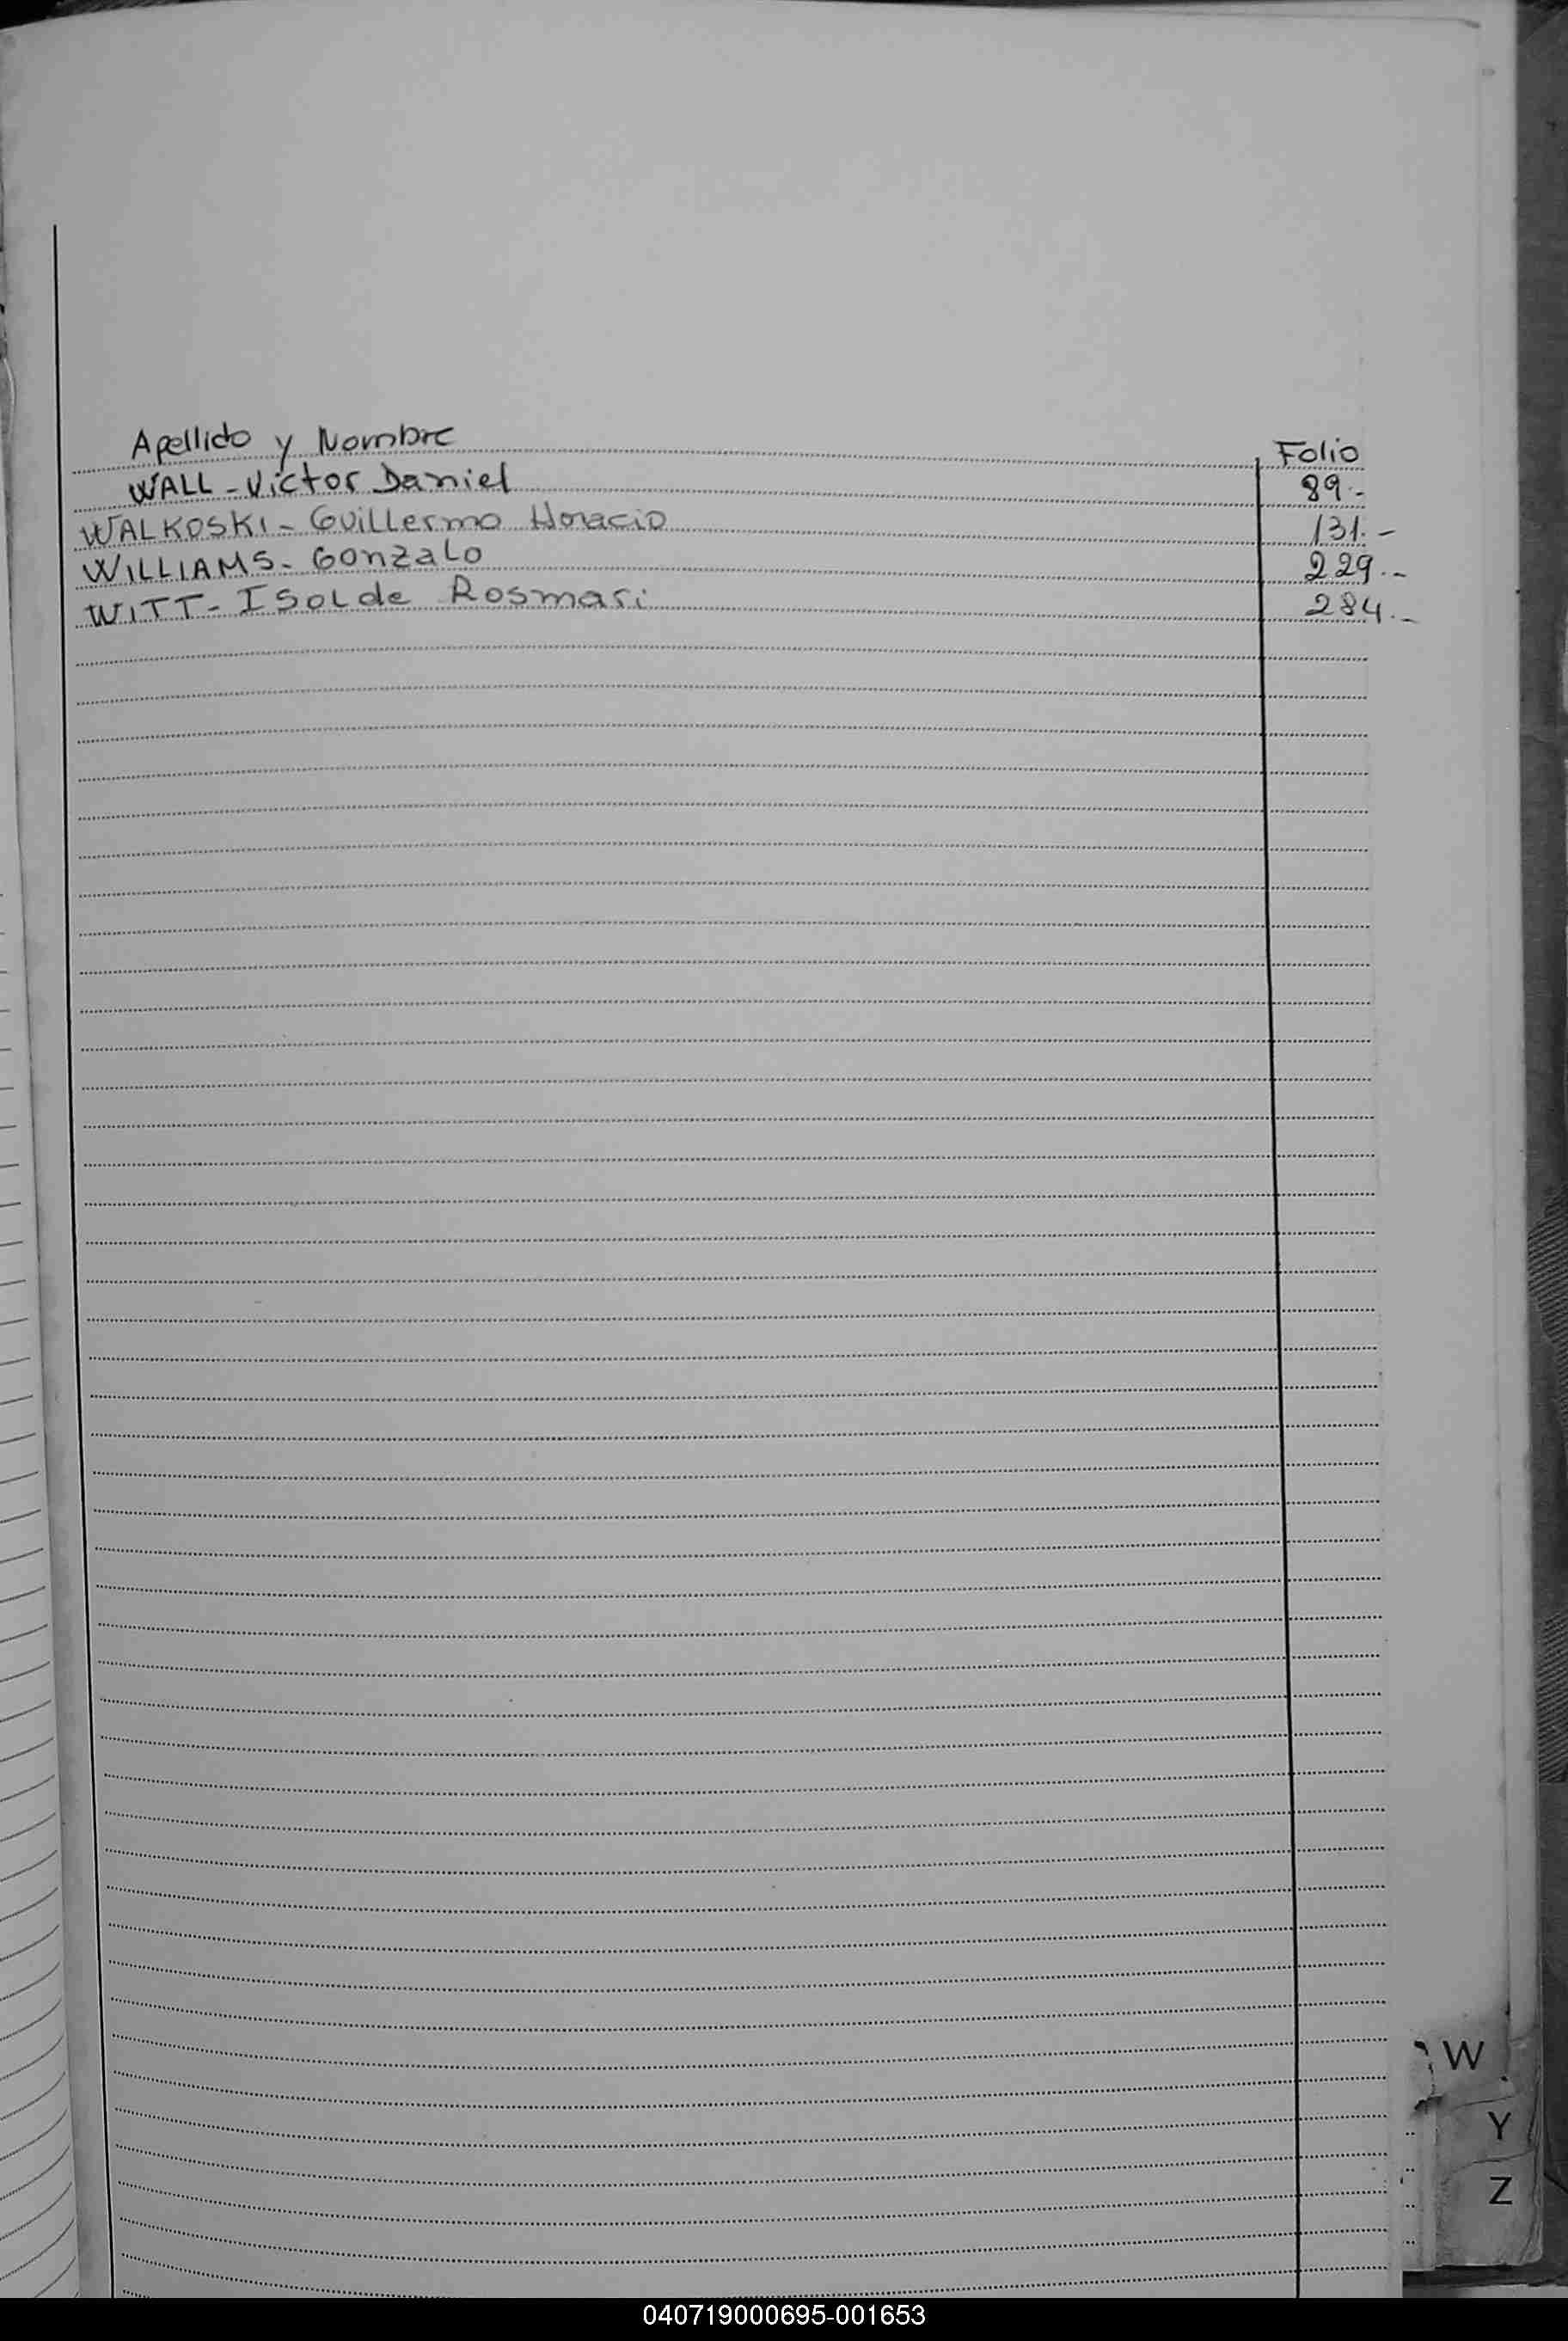 Apellido y Nombre Folio
WALL - Victor Daniel 89.-
WALKOSKI - Guillermo Horacio 131.-
WILLIAMS - Gonzalo 229.-
WITT - Isolde Rosmari 284.-
W
Y
Z
040719000695-001653